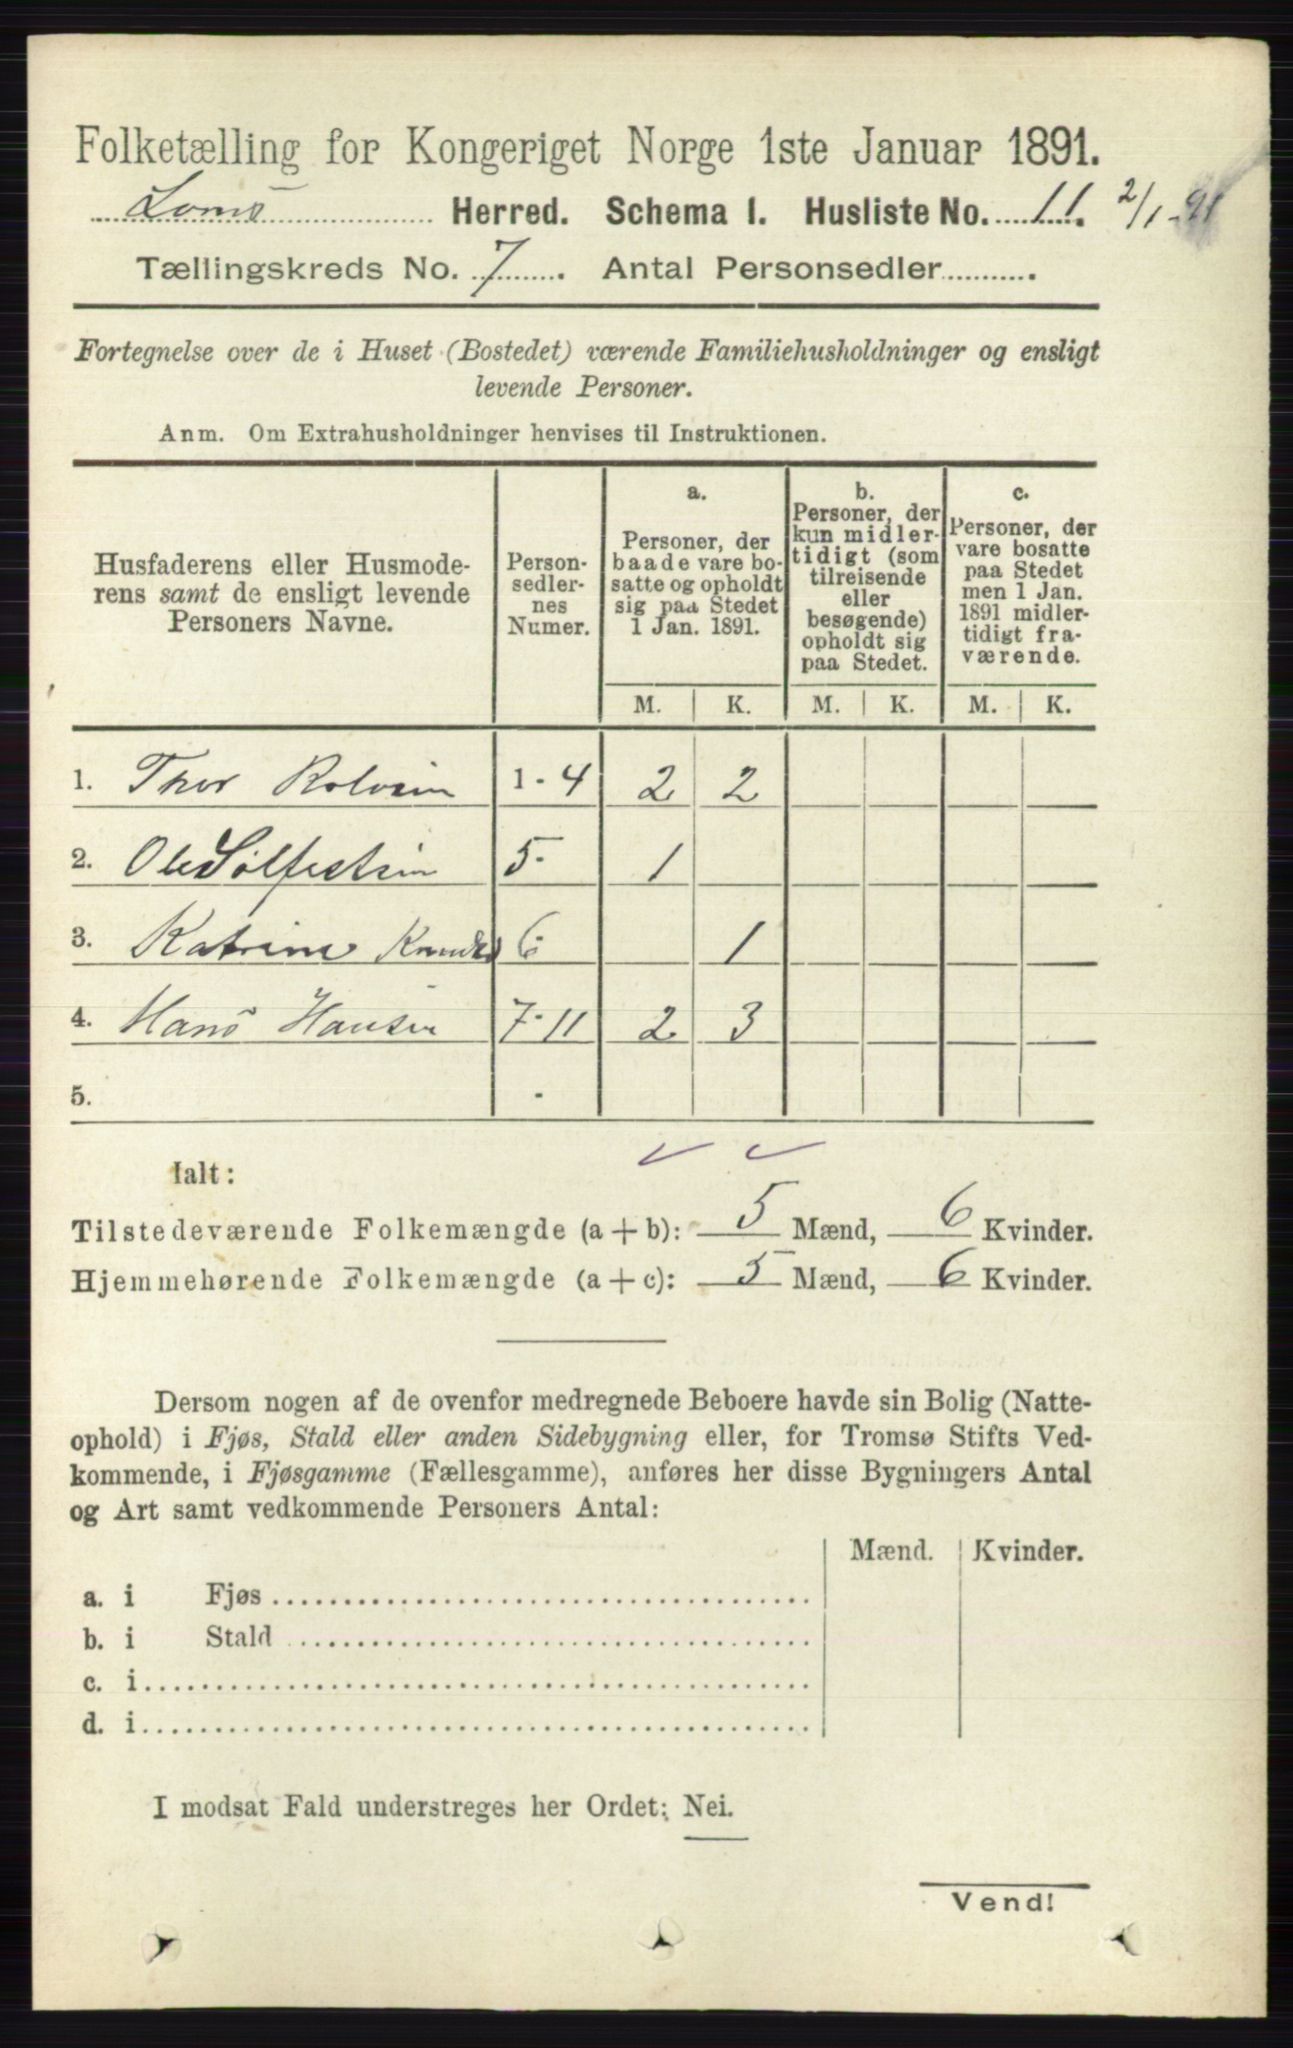 Folketælling for Kongeriget Norge 1ste Januar 1891.
Loms Herred. Schema I. Husliste No. 11. 2/1-91
Tællingskreds No. 7. Antal Personsedler
Fortegnelse over de i Huset (Bostedet) værende Familiehusholdninger og ensligt
levende Personer.
Anm. Om Extrahusholdninger henvises til Instruktionen.
Husfaderens eller Husmode-
rens samt de ensligt levende
Personers Navne.
Person-
sedler-
nes
Numer.
a.
Personer, der
baade vare bo-
satte og opholdt
sig paa Stedet
1 Jan. 1891.
b.
Personer, der
kun midler-
tidigt (som
tilreisende
eller
besøgende)
opholdt sig
paa Stedet.
c.
Personer, der
vare bosatte
paa Stedet
men 1 Jan.
1891 midler-
tidigt fra-
værende.
M. K. M. K. M. K.
1. Thor 1-4 2 2
2. Ole 5- 1
3. Katrine 6- 1
4. Hans Hansen 7-11 2 3
5. -
Ialt:
Tilstedeværende Folkemængde (a + b): 5 Mænd, 6 Kvinder.
Hjemmehørende Folkemængde (a + c): 5 Mænd, 6 Kvinder.
Dersom nogen af de ovenfor medregnede Beboere havde sin Bolig (Natte-
ophold) i Fjøs, Stald eller anden Sidebygning eller, for Tromsø Stifts Ved-
kommende, i Fjøsgamme (Fællesgamme), anføres her disse Bygningers Antal
og Art samt vedkommende Personers Antal:
Mænd. Kvinder.
a. i Fjøs
b. i Stald
c. i
d. i
I modsat Fald understreges her Ordet: Nei.
Vend!